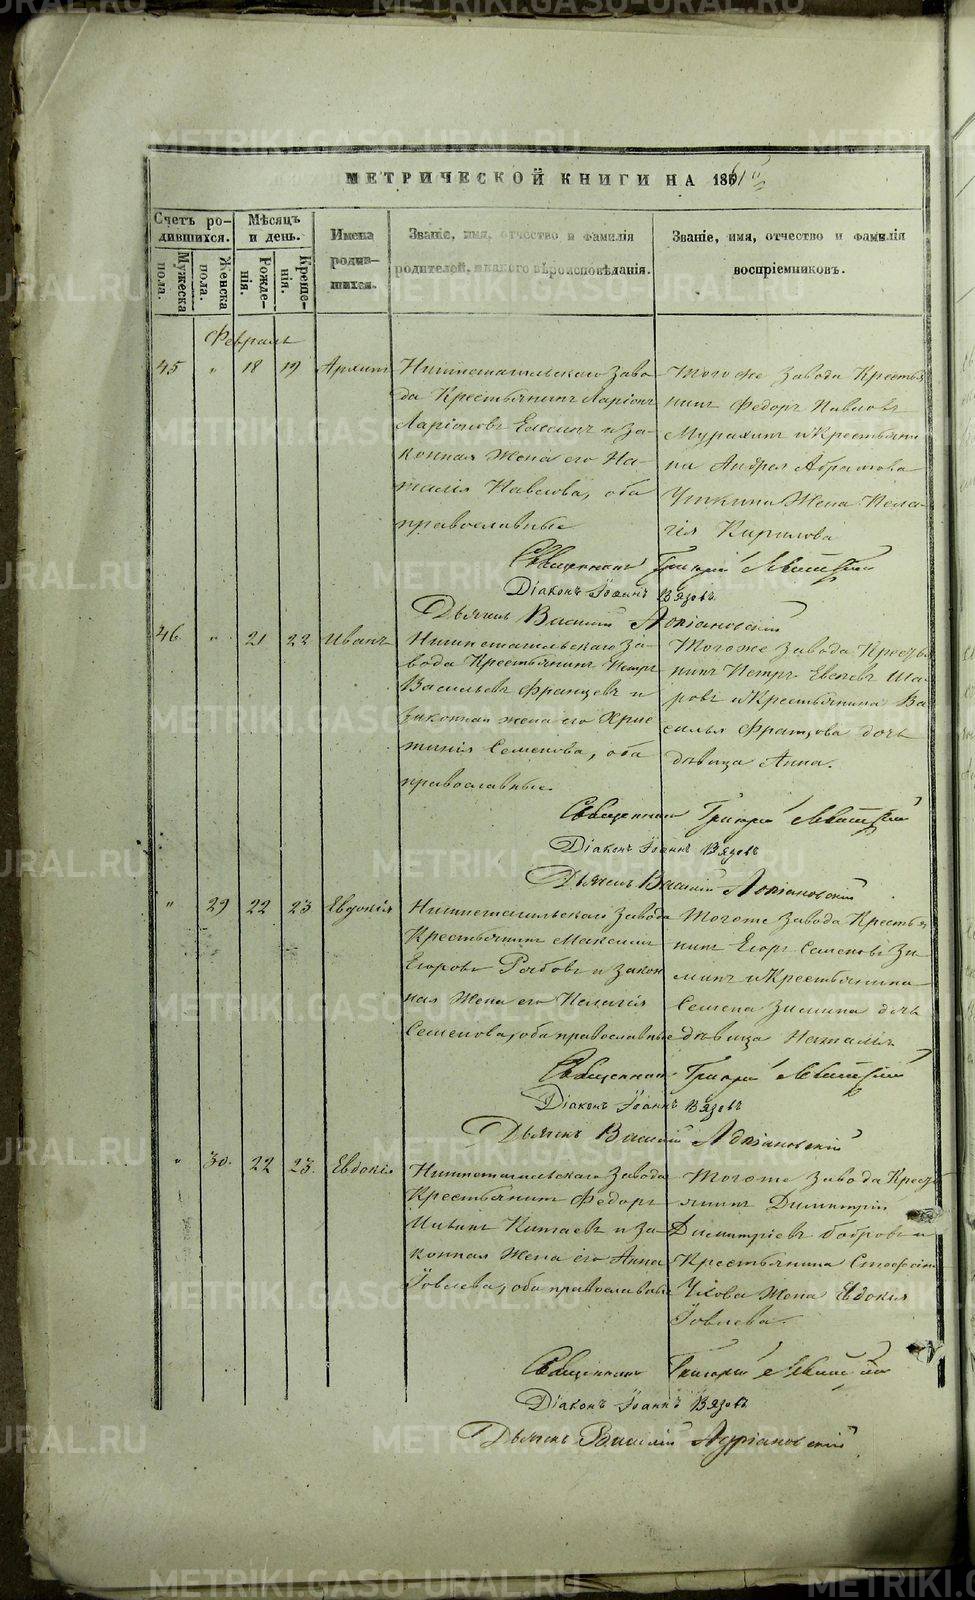 МЕТРИЧЕСКОЙ КНИГИ НА 1861й
Счетъ ро-
дившихся.
Мѣсяцъ
и день.
Имена
родив-
шихся.
Званіе, имя, отчество и фамилія
родителей, и какого вѣроисповѣданія.
Званіе, имя, отчество и фамилія
воспріемниковъ.
Мужеска
пола.
Женска
пола.
Рожде-
нія.
Креще-
нія.
Февраль
45 " 18 19 Архип
Нижнетагильскаго Заво-
да Крестьянинъ Ларіонъ
Ларіоновъ и за-
конная Жена его На-
талія Павлова, оба
православные
Того же Завода Крестья
нинъ Федоръ Павловъ
и Крестьяни
на Андрея Абрамова
Жена Пела-
гія Кирилова
Священникъ Григорій Левитскій
Діаконъ Іоаннъ Вязовъ
Дьячекъ Василій Адріановскій
46 " 21 22 Иванъ
Нижнетагильскаго За-
вода Крестьянинъ Петръ
Васильевъ Францевъ и
законная жена его Хрис
тинія Семенова, оба
православные.
Тогоже Завода Кресть
нинъ Петръ Евсеевъ Ша-
ровъ и Крестьянина Ва
силья Францова дочь
дѣвица Анна.
Священникъ Григорій Левитскій
Діаконъ Іоаннъ Вязовъ
Дьячекъ Василій Адріановскій
" 29 22 23 Евдокія
Нижнетагильскаго Завода
Крестьянинъ Максимъ
Егоровъ Рябовъ и закон
ная Жена его Пелагія
Семенова, оба православные
Тогоже Завода Крестья
нинъ Егоръ Семеновъ Зи-
минъ и Крестьянина
Семена Зимина дочь
дѣвица Наталья
Священникъ Григорій Левитскій
Діаконъ Іоаннъ Вязовъ
Дьячекъ Василій Адріановскій
" 30. 22 23. Евдокія
Нижнетагильскаго Завода
Крестьянинъ Федоръ
Китаевъ и за-
конная Жена его Анна
Іовлева, оба православные
Тогоже Завода Кресть
янинъ Димитрій
Димитріевъ Бобровъ и
Крестьянина
Жена Евдокія
Іовлева.
Священникъ Григорій Левитскій
Діаконъ Іоаннъ Вязовъ
Дьячекъ Василій Адріановскій
METRIKI.GASO-URAL.RU